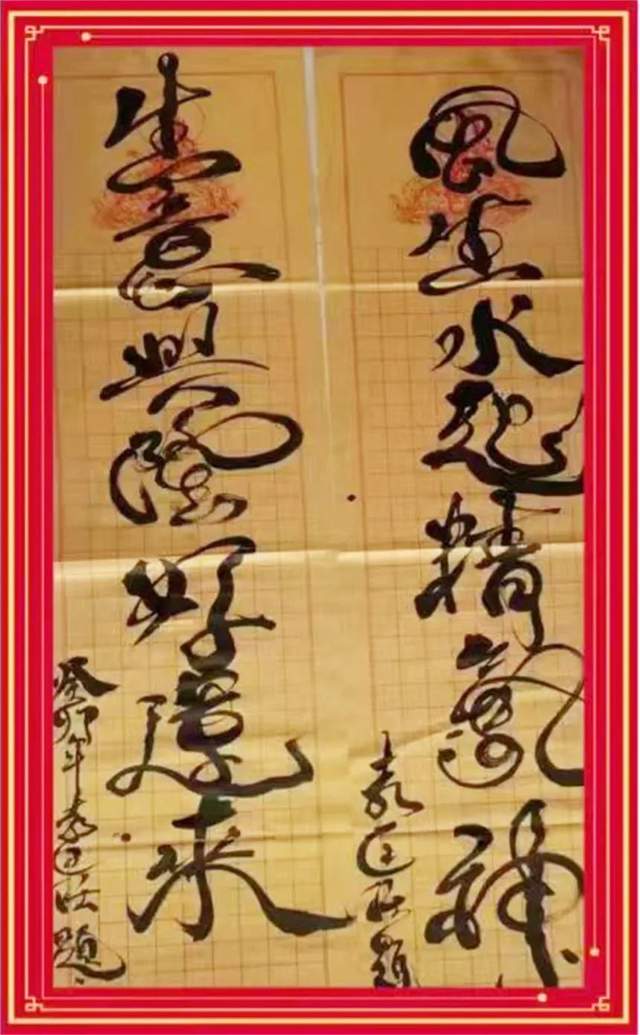 風生水起精氣神
袁 題
生意興隆好運来
癸卯年袁 題